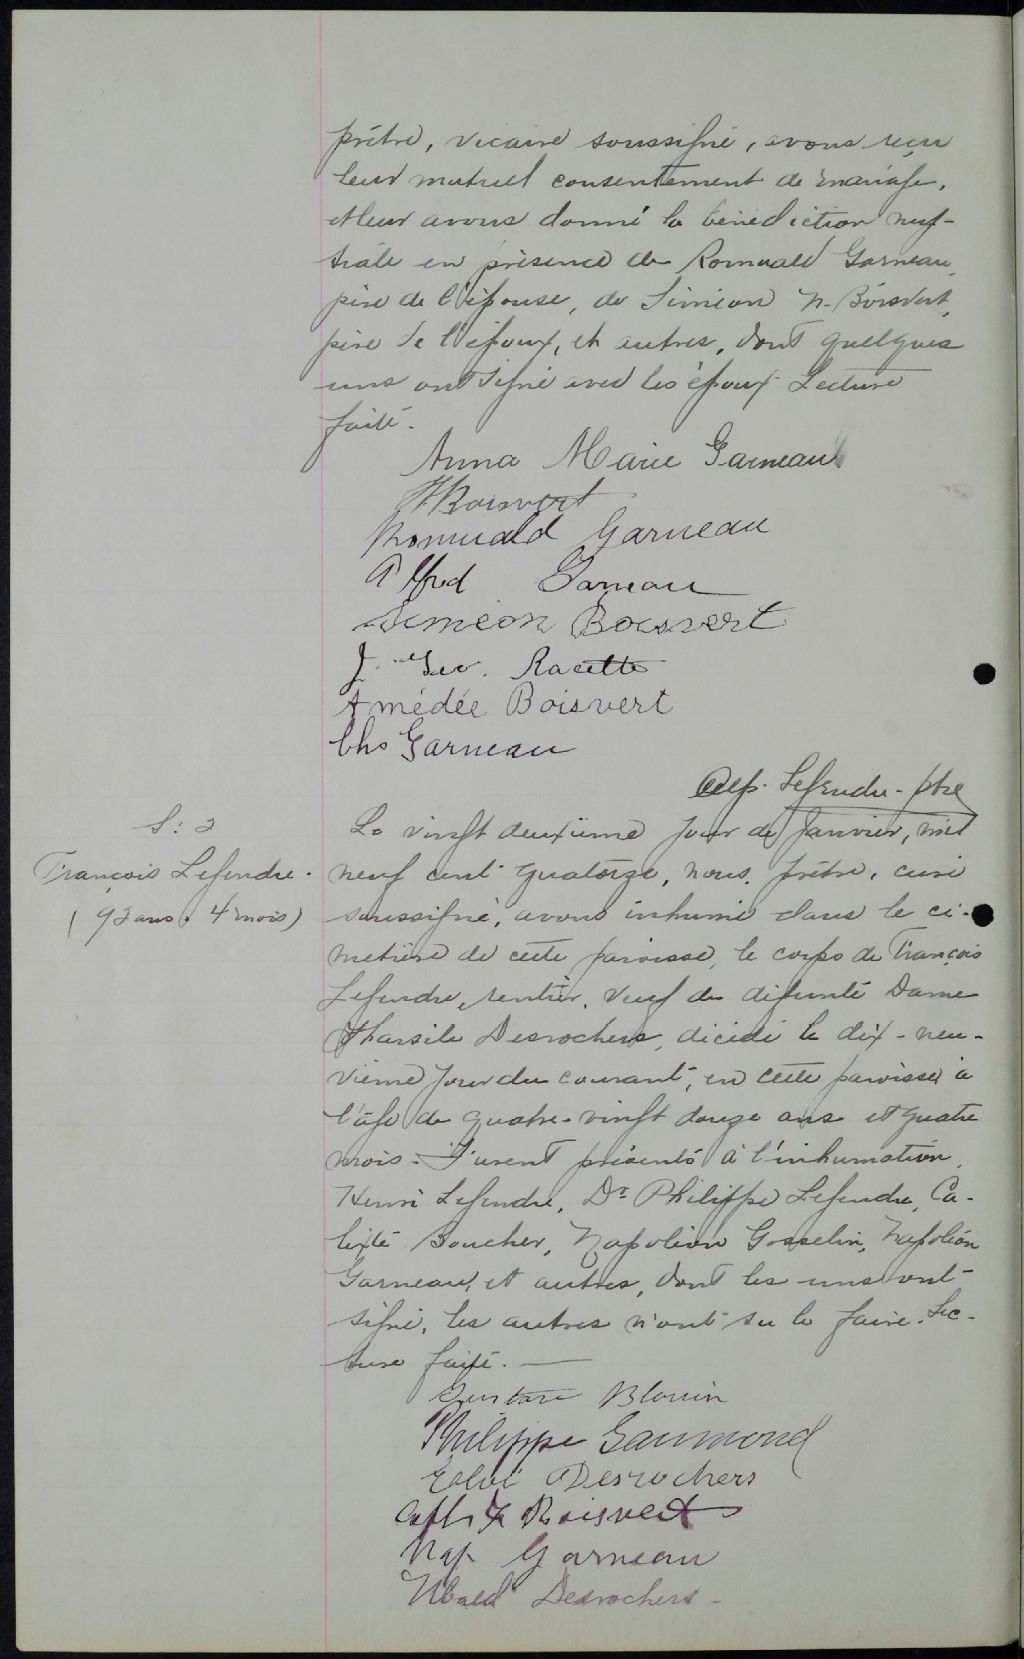 prêtre, vicaire soussigné, avons reçu
leur mutuel consentement de mariage,
et leur avons donné la bénédiction nup-
tiale en présence de Romuald Garneau,
père de l'épouse, de Siméon N. Boisvert,
père de l'époux, et autres, dont quelques
uns ont signé avec les époux. Lecture
faite.
Anna Marie Garneau
Boisvert
Romuald Garneau
Alfred Garneau
Simeon Boisvert
J. Geo. Racette
Amédée Boisvert
Chs Garneau
Alp. Lefendre - ptre
S: 2
François Lefendre.
(92 ans. 4 mois)
Le vingt deuxième jour de Janvier, mil
neuf cent quatorze, nous, prêtre, curé
soussigné, avons inhumé dans le ci-
metière de cette paroisse, le corps de François
Lefendre, rentier, veuf de défunte Dame
Tharsile Desrochers, décédé le dix-neu-
vième jour du courant, en cette paroisse à
l'âge de quatre-vingt douze ans et quatre
mois. Furent présents à l'inhumation,
Henri Lefendre, Dr Philippe Lefendre, Ca-
lixte Boucher, Napoléon Gosselin, Napoléon
Garneau, et autres, dont les uns ont
signé, les autres n'ont su le faire. Lec-
ture faite. —
Gustave Blouin
Philippe Gaumond
Eloi Desrochers
Boisvert
Nap Garneau
Ubald Desrochers -